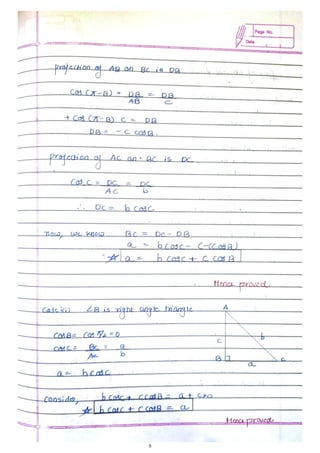 Page No.
Date
projection of AB on BC is DB
cos (π-B) = DB/AB = DB/c
+ cos (π-B) c = DB
DB = - c cosB.
projection of AC on BC is DC.
cos C = DC/AC = DC/b
∴ DC = b cosC
now, we know BC = DC - DB
a = b cosC - (-c cosB)
☆ a = b cosC + c cosB
Hence proved.
Case iii) ∠B is right angle triangle
A
cosB = cos π/2 = 0
cosC = BC/AC = a/b
c
b
B
C
a
a = b cosC
Consider, b cosC + c cosB = a + c×0
☆ b cosC + c cosB = a
Hence proved